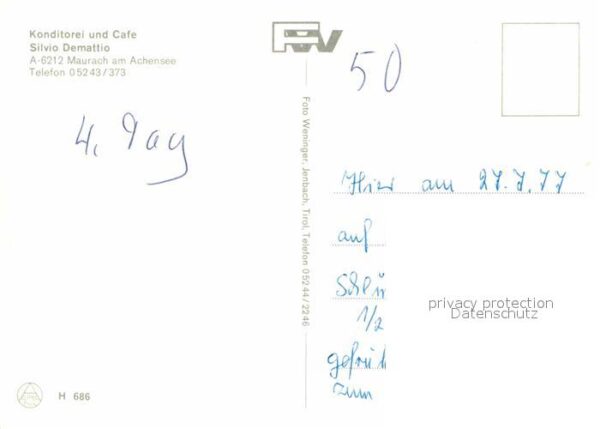 Konditorei und Cafe
Silvio Demattio
A-6212 Maurach am Achensee
Telefon 05243/373
4. Tag
H 686
Foto Weninger, Jenbach, Tirol, Telefon 05244/2246
50
Hier am 27.7.77
auf
1/2
gefrüh
zum
privacy protection
Datenschutz